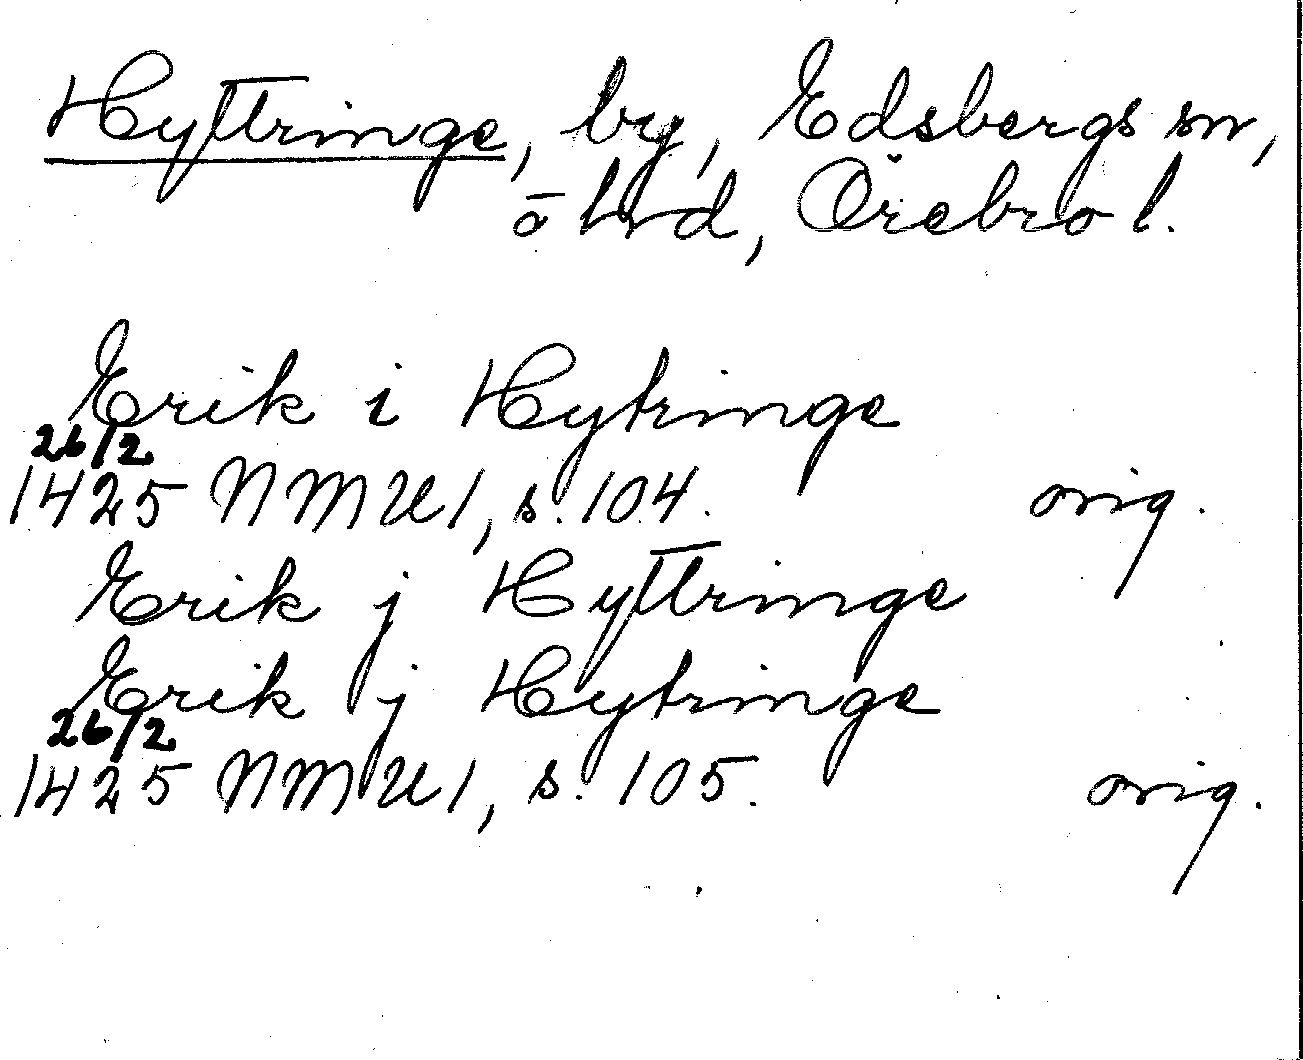 Hyttringe, by, Edsbergs sn,
ō hrd, Örebro l.
Erik i Hytringe
26/2
1425 NMU1, s. 104. orig.
Erik j Hyttringe
Erik j Hytringe
26/2
1425 NMU1, s. 105. orig.